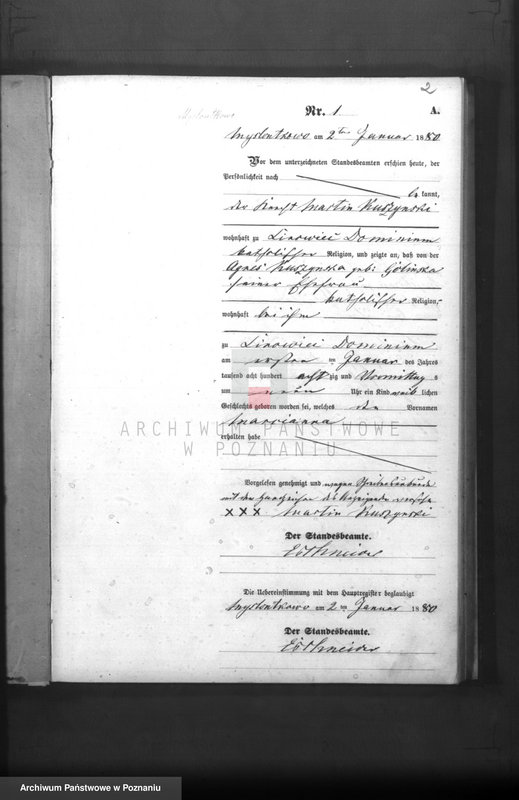 2
Nr. 1
A.
Myslontkowo am 2ten Januar 1880
Vor dem unterzeichneten Standesbeamten erschien heute, der
Persönlichkeit nach
bekannt,
der Knecht Martin Ruszynski
wohnhaft zu Linowiec Dominium
katholischer Religion, und zeigte an, daß von der
Agnes Ruszynska geb: Golinska
seiner Ehefrau
katholischer Religion,
wohnhaft bei ihm
zu Linowiec Dominium
am ersten ten Januar des Jahres
tausend acht hundert achtzig und Vormittags
um neun Uhr ein Kind weiblichen
Geschlechts geboren worden sei, welches den Vornamen
Marcianna
erhalten habe
Vorgelesen genehmigt und wegen Schreibensunkunde
mit den Handzeichen des Anzeigenden versehen
XXX Martin Ruszynski
Der Standesbeamte.
Die Uebereinstimmung mit dem Hauptregister beglaubigt
Myslontkowo am 2ten Januar 1880
Der Standesbeamte.
ARCHIWUM PAŃSTWOWE
W POZNANIU
Archiwum Państwowe w Poznaniu